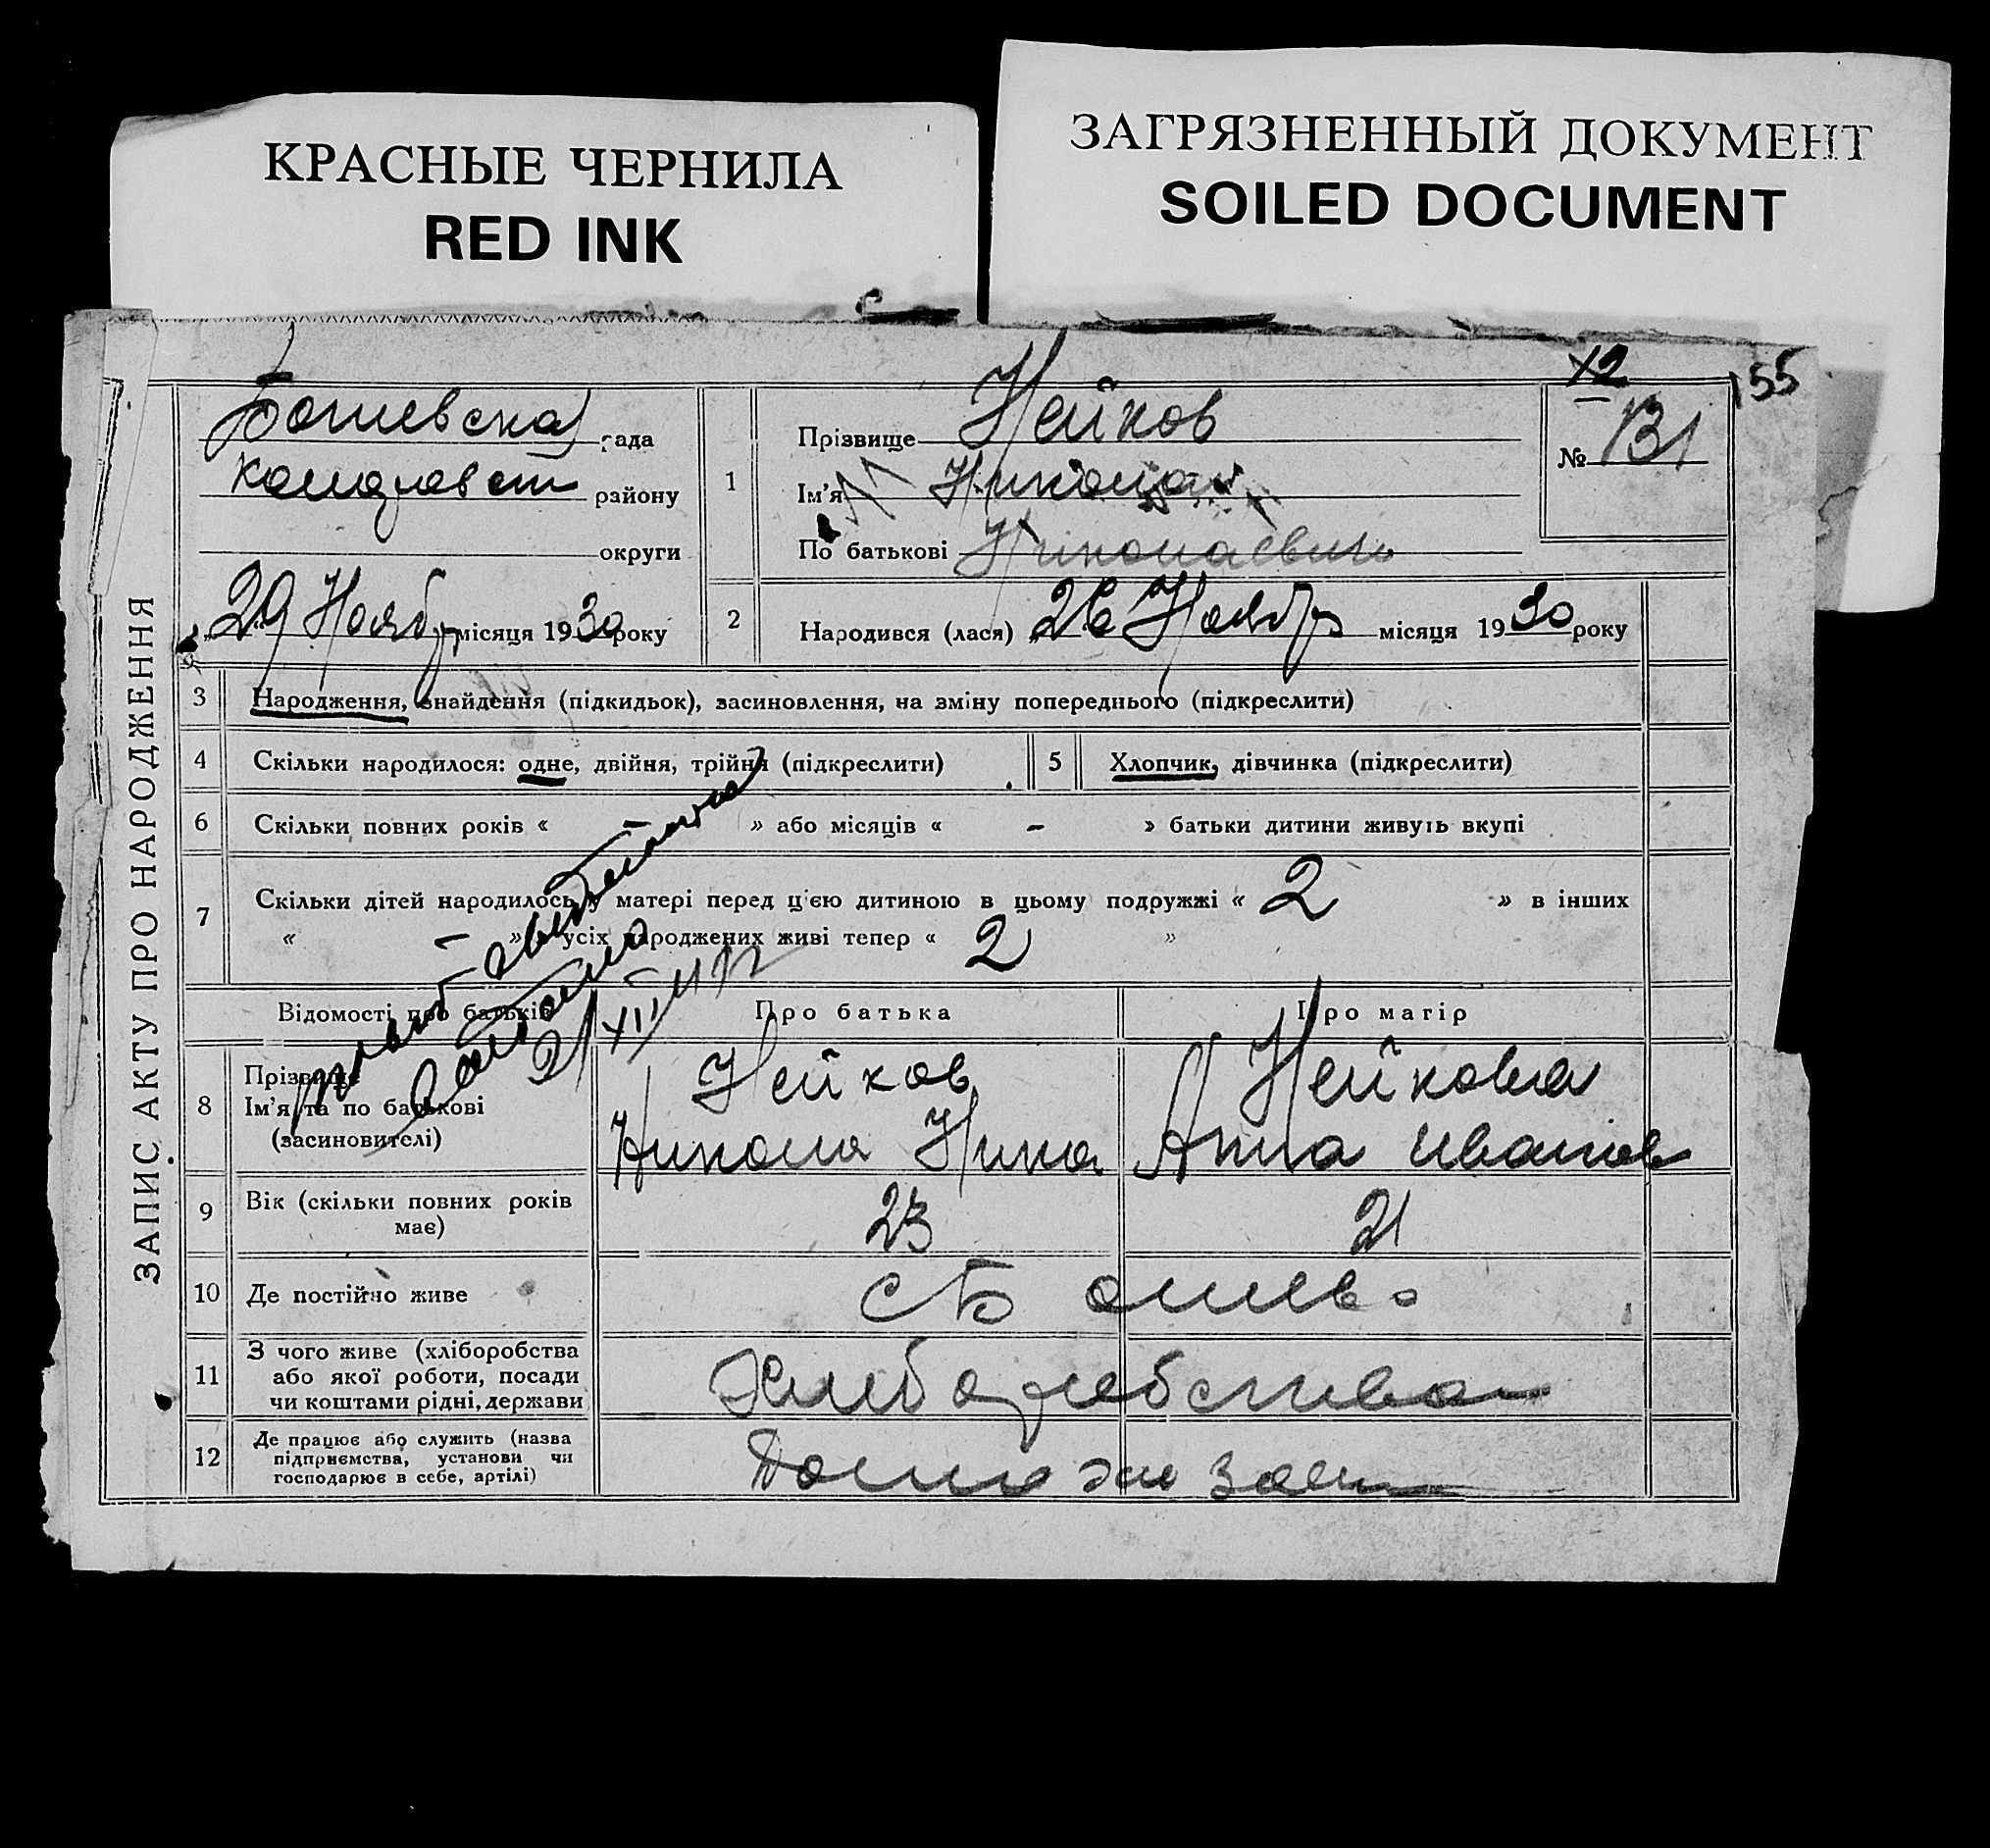 КРАСНЫЕ ЧЕРНИЛА
RED INK
ЗАГРЯЗНЕННЫЙ ДОКУМЕНТ
SOILED DOCUMENT
ЗАПИС АКТУ ПРО НАРОДЖЕННЯ
155
рада
району
округи
29 Ноябр місяця 1930 року
1
Прізвище Нейков
Ім'я Никола
По батькові Николаевич
№ 131
2
Народився (лася) 26 Ноябр місяця 1930 року
3 Народження, знайдення (підкидьок), засиновлення, на зміну попереднього (підкреслити)
4 Скільки народилося: одне, двійня, трійня (підкреслити)
5 Хлопчик, дівчинка (підкреслити)
6 Скільки повних років « – » або місяців « – » батьки дитини живуть вкупі
7 Скільки дітей народилось у матері перед ц'єю дитиною в цьому подружжі « 2 » в інших
« – » усіх народжених живі тепер « 2 »
21/XII
Відомості про батьків
Про батька
Про матір
8
Прізвище
Ім'я та по батькові
(засиновителі)
Нейков
Никола
Нейкова
Анна Иванов
9 Вік (скільки повних років
має)
23
21
10 Де постійно живе
11
З чого живе (хліборобства
або якої роботи, посади
чи коштами рідні, держави
12
Де працює або служить (назва
підприємства, установи чи
господарює в себе, артілі)